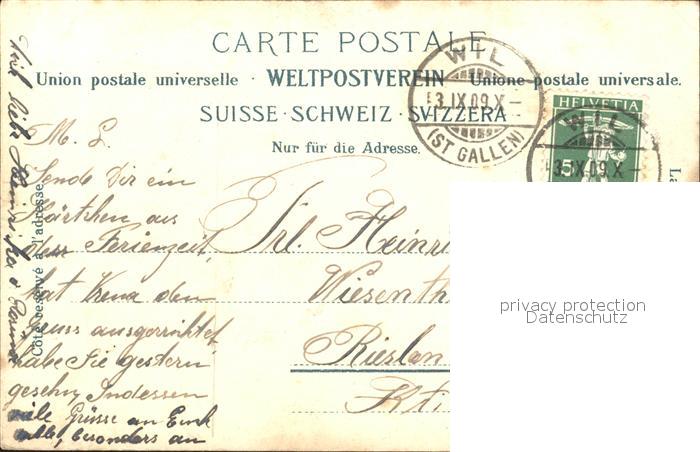 CARTE POSTALE
Union postale universelle · WELTPOSTVEREIN · Unione postale universale.
SUISSE · SCHWEIZ · SVIZZERA
Nur für die Adresse.
WIL
13.IX.09.X-
(ST GALLEN)
HELVETIA
5
WIL
13.IX.09.X-
Côté réservé à l'adresse.
M. L.
Sende Dir ein
Kärtchen aus
der Ferienzeit,
hat Krena den
Gruss ausgerichtet
habe Sie gestern
gesehn, Indessen
viele Grüsse an Euch
alle, besonders an
Frl. Heinri
Wiesenth
Kt.
La
privacy protection
Datenschutz